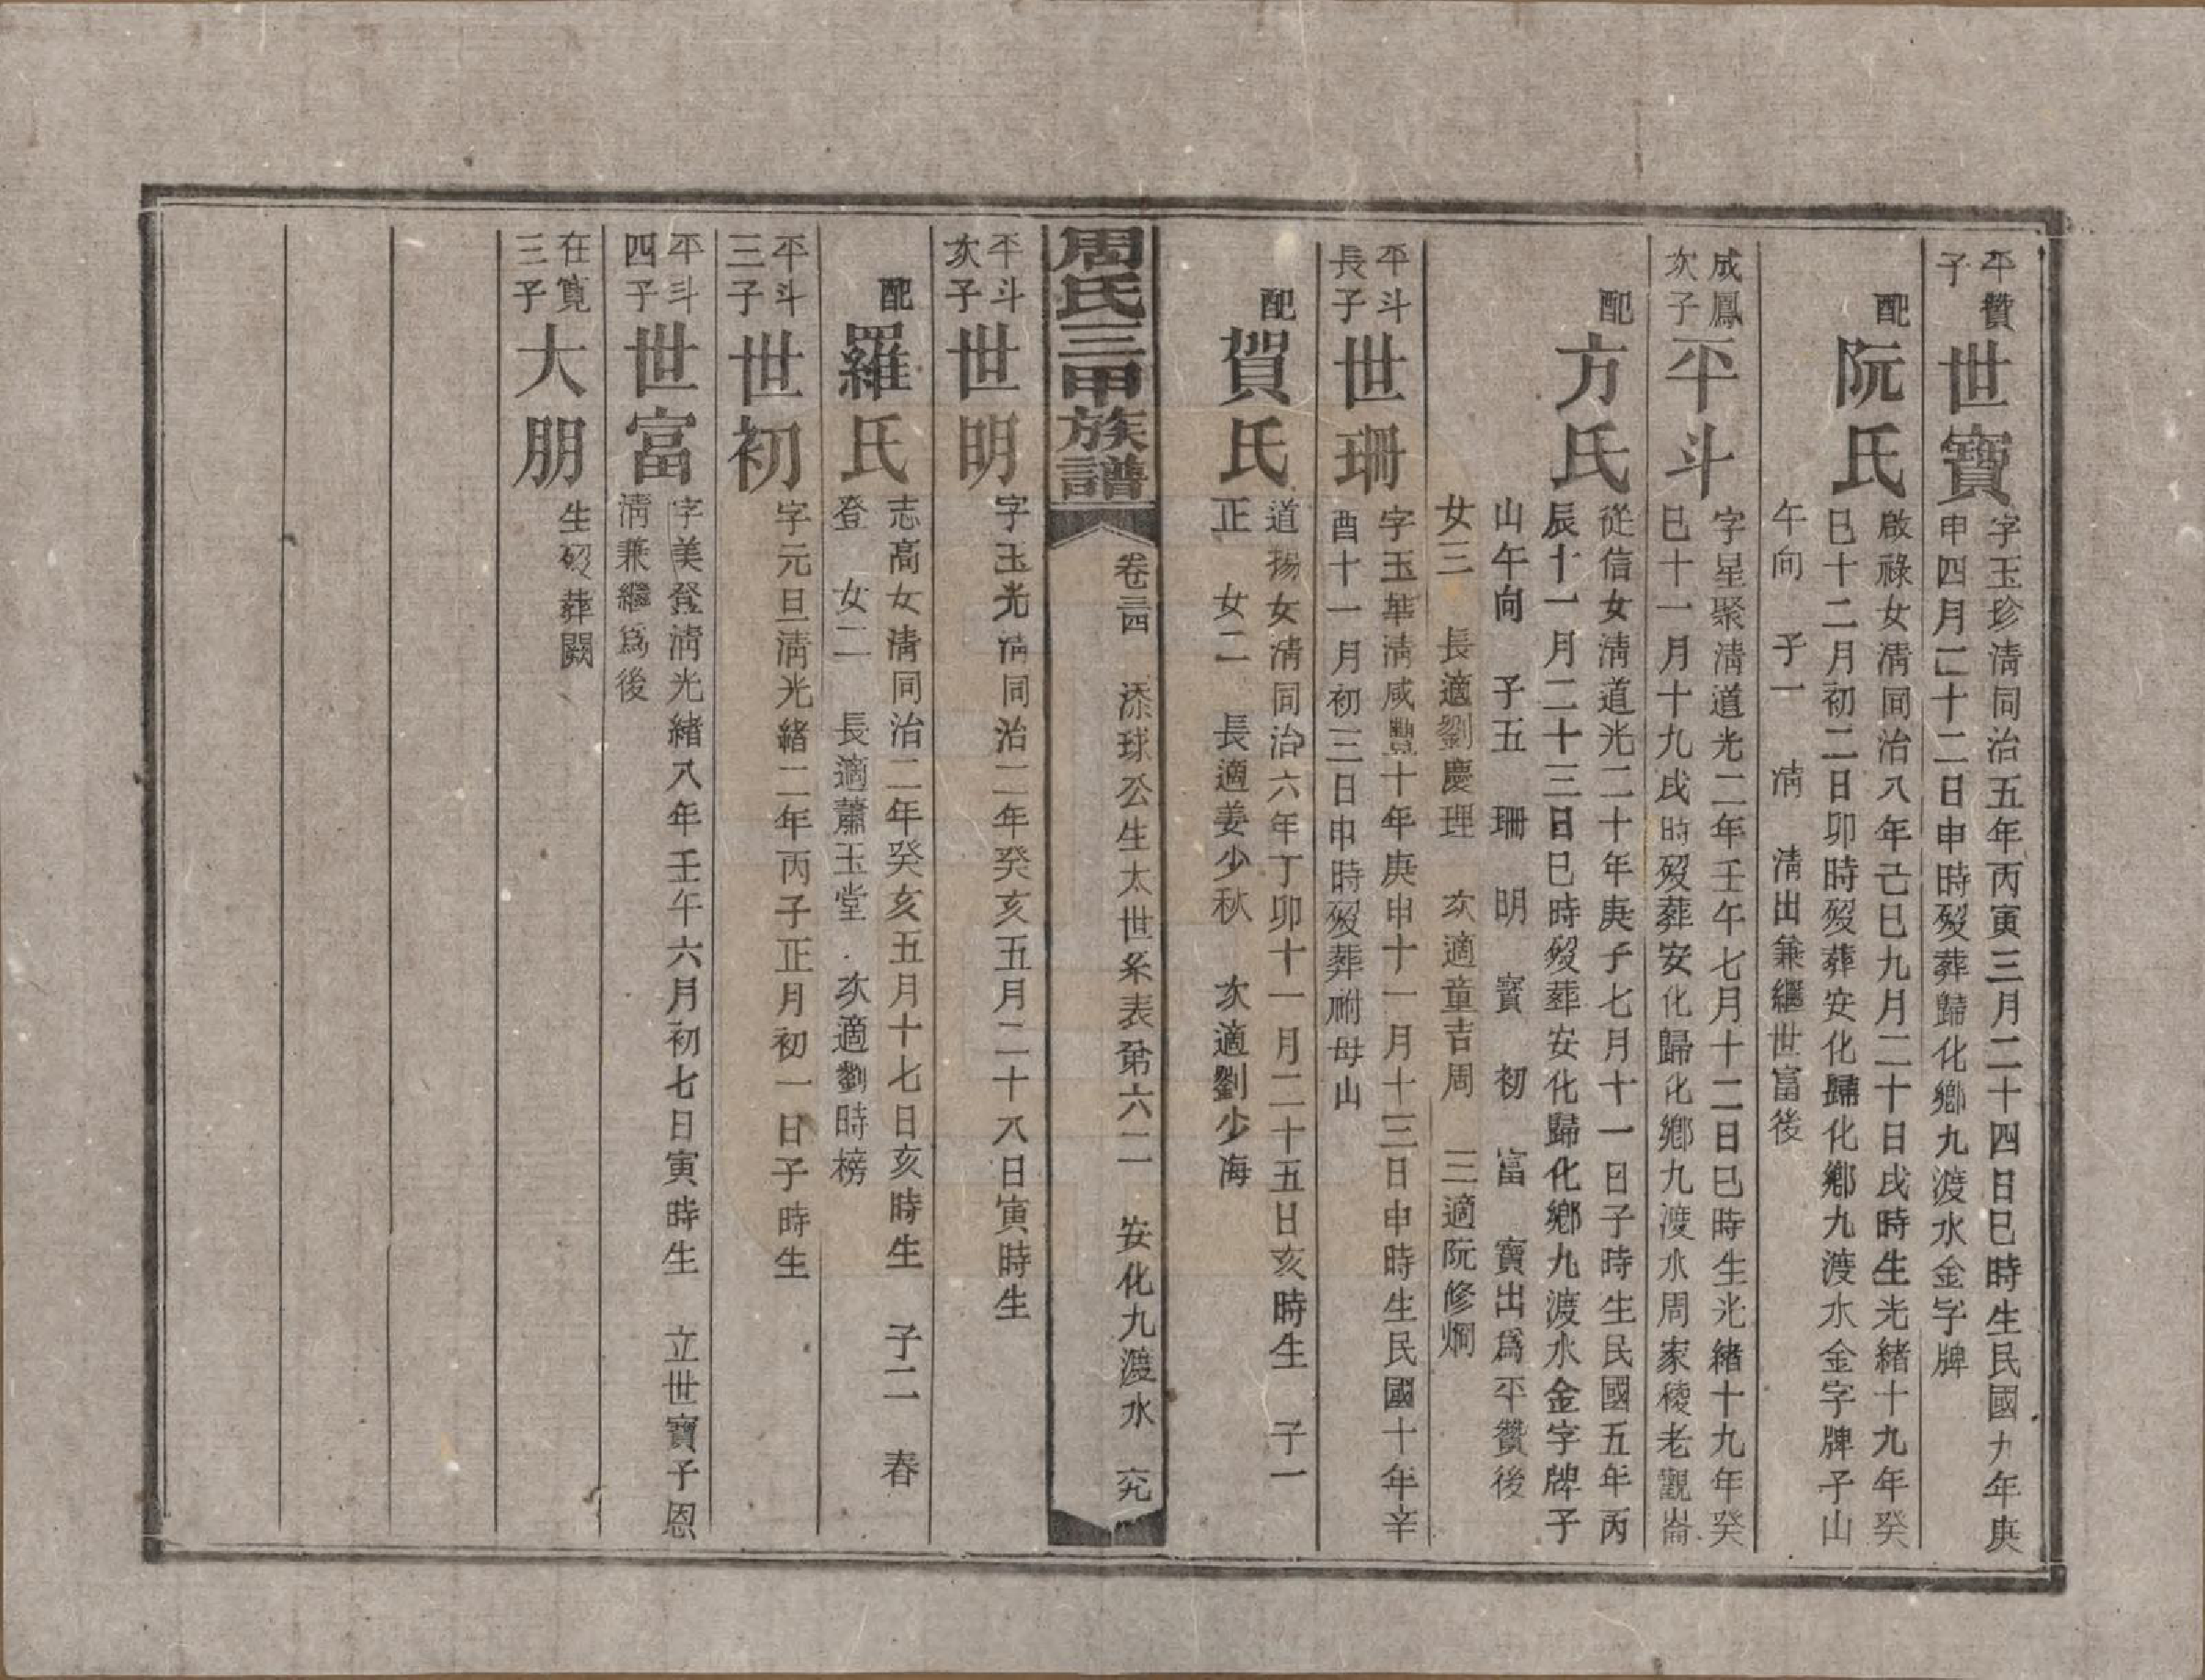 平贊
子
世寶
字玉珍淸同治五年丙寅三月二十四日巳時生民國九年庚
申四月二十二日申時歿葬歸化鄉九渡水金字牌
配
阮氏
啟祿女淸同治八年己巳九月二十日戌時生光緒十九年癸
巳十二月初二日卯時歿葬安化歸化鄉九渡水金字牌子山
午向 子一 淸出兼繼世富後
成鳳
次子
平斗
字星聚淸道光二年壬午七月十二日巳時生光緒十九年癸
巳十一月十九戌時歿葬安化歸化鄉九渡水周家稜老觀崙
配
方氏
從信女淸道光二十年庚子七月十一日子時生民國五年丙
辰十一月二十三日巳時歿葬安化歸化鄉九渡水金字牌子
山午向 子五 珊 明 寶 初 富 寶出爲平贊後
女三 長適劉慶理 次適童吉周 三適阮修炯
平斗
長子
世珊
字玉華淸咸豐十年庚申十一月十三日申時生民國十年辛
酉十一月初三日申時歿葬祔母山
配
賀氏
道揚女淸同治六年丁卯十一月二十五日亥時生 子一
正 女二 長適姜少秋 次適劉少海
周氏三甲族譜
卷三四 添球公生太世系表第六二 安化九渡水 究
平斗
次子
世明
字玉光淸同治二年癸亥五月二十八日寅時生
配
羅氏
志高女淸同治二年癸亥五月十七日亥時生 子二 春
登 女二 長適蕭玉堂 次適劉時榜
平斗
三子
世初
字元旦淸光緒二年丙子正月初一日子時生
平斗
四子
世富
字美登淸光緒八年壬午六月初七日寅時生 立世寶子恩
淸兼繼爲後
在寬
三子
大朋
生歿葬闕